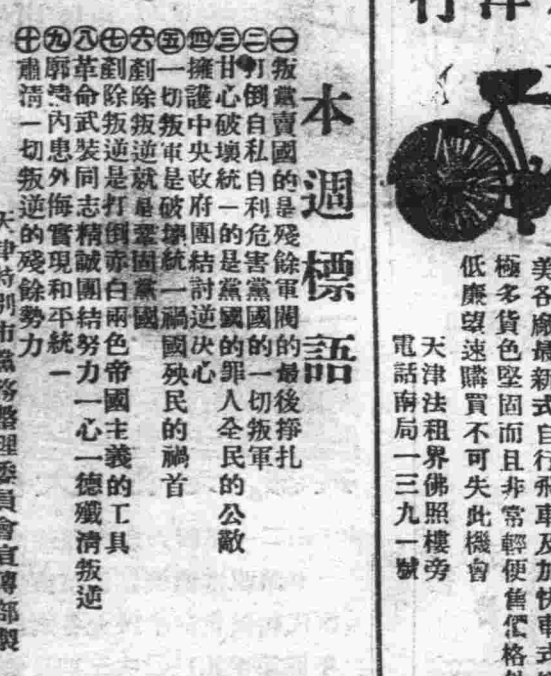 行洋
美各廠最新式自行飛車及加快車式
極多貨色堅固而且非常輕便售價格
低廉望速購買不可失此機會
天津法租界佛照樓旁
電話南局一三九一號
本週標語
㊀叛黨賣國的是殘餘軍閥的最後掙扎
㊁打倒自私自利危害黨國的一切叛軍
㊂甘心破壞統一的是黨國的罪人全民的公敵
㊃擁護中央政府團結討逆决心
㊄一切叛軍是破壞統一禍國殃民的禍首
㊅剷除叛逆就是鞏固黨國
㊆剷除叛逆是打倒赤白兩色帝國主義的工具
㊇革命武裝同志精誠團結努力一心一德殲清叛逆
㊈廓清內患外侮實現和平統一
㊉肅清一切叛逆的殘餘勢力
天津特別市黨務整理委員會宣傳部製